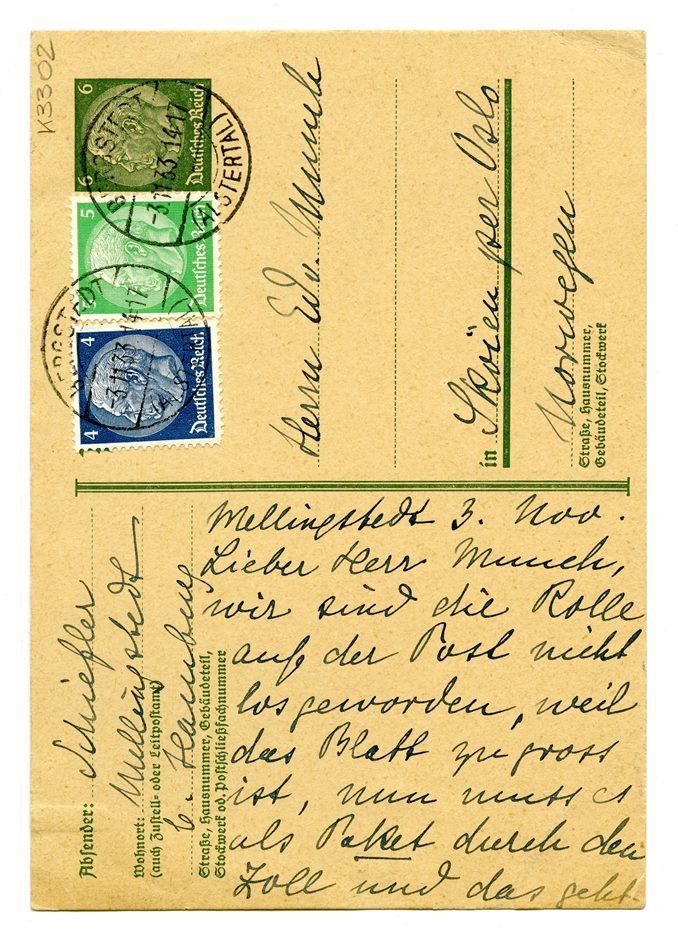 K3302
6
6
Deutsches Reich
5
Deutsches Reich
4
4
Deutsches Reich
BERGSTEDT
-3.11.33.14-17
(ALSTERTAL)
BERGSTEDT
-3.11.33.14-17
(ALSTERTAL)
Herrn Edv. Munch
in Skøien per Oslo
Norwegen
Straße, Hausnummer,
Gebäudeteil, Stockwerk
Absender: Schiefler
Wohnort: Mellingstedt
(auch Zustell- oder Leitpostamt)
b. Hamburg
Straße, Hausnummer, Gebäudeteil,
Stockwerk od. Postschließfachnummer
Mellingstedt 3. Nov.
Lieber Herr Munch,
wir sind die Rolle
auf der Post nicht
losgeworden, weil
das Blatt zu gross
ist, nun muss es
als Paket durch den
Zoll und das geht